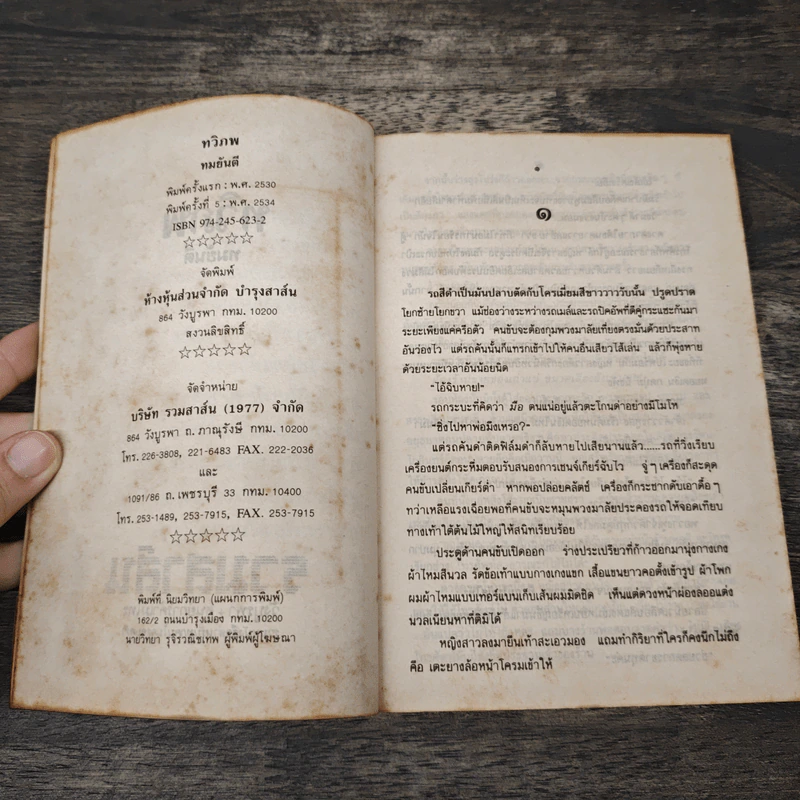 ทวิภพ
ทมยันตี
พิมพ์ครั้งแรก : พ.ศ. 2530
พิมพ์ครั้งที่ 5 : พ.ศ. 2534
ISBN 974-245-623-2
☆☆☆☆☆
จัดพิมพ์
ห้างหุ้นส่วนจำกัด บำรุงสาส์น
864 วังบูรพา กทม. 10200
สงวนลิขสิทธิ์
☆☆☆☆☆
จัดจำหน่าย
บริษัท รวมสาส์น (1977) จำกัด
864 วังบูรพา ถ. ภาณุรังษี กทม. 10200
โทร. 226-3808, 221-6483 FAX. 222-2036
และ
1091/86 ถ. เพชรบุรี 33 กทม. 10400
โทร. 253-1489, 253-7915, FAX. 253-7915
☆☆☆☆☆
พิมพ์ที่ นิยมวิทยา (แผนกการพิมพ์)
162/2 ถนนบำรุงเมือง กทม. 10200
นายวิทยา รุจิรวณิชเทพ ผู้พิมพ์ผู้โฆษณา
๑
รถสีดำเป็นมันปลาบตัดกับโครเมี่ยมสีขาววาววับนั้น ปรูดปราด
โยกซ้ายโยกขวา แม้ช่องว่างระหว่างรถเมล์และรถปิคอัพที่ตีคู่กระแชะกันมา
ระยะเพียงแค่ครือตัว คนขับจะต้องกุมพวงมาลัยเที่ยงตรงมั่นด้วยประสาท
อันว่องไว แต่รถคันนั้นก็แทรกเข้าไปให้คนอื่นเสียวไส้เล่น แล้วก็พุ่งหาย
ด้วยระยะเวลาอันน้อยนิด
"ไอ้ฉิบหาย!"
รถกระบะที่คิดว่า มือ ตนแน่อยู่แล้วตะโกนด่าอย่างมีโมโห
"ซิ่งไปหาพ่อมึงเหรอ?"
แต่รถคันดำติดฟิล์มดำก็ลับหายไปเสียนานแล้ว......รถที่วิ่งเรียบ
เครื่องยนต์กระหึ่มตอบรับสนองการเชนจ์เกียร์ฉับไว จู่ ๆ เครื่องก็สะดุด
คนขับเปลี่ยนเกียร์ต่ำ หากพอปล่อยคลัตช์ เครื่องก็กระชากดับเอาดื้อ ๆ
ทว่าเหลือแรงเฉื่อยพอที่คนขับจะหมุนพวงมาลัยประคองรถให้จอดเทียบ
ทางเท้าใต้ต้นไม้ใหญ่ให้สนิทเรียบร้อย
ประตูด้านคนขับเปิดออก ร่างประเปรียวที่ก้าวออกมานุ่งกางเกง
ผ้าไหมสีนวล รัดข้อเท้าแบบกางเกงแขก เสื้อแขนยาวคอตั้งเข้ารูป ผ้าโพก
ผมผ้าไหมแบบเทอร์แบนเก็บเส้นผมมิดชิด เห็นแต่ดวงหน้าผ่องลออแต่ง
นวลเนียนหาที่ติมิได้
หญิงสาวลงมายืนเท้าสะเอวมอง แถมทำกิริยาที่ใครก็คงนึกไม่ถึง
คือ เตะยางล้อหน้าโครมเข้าให้